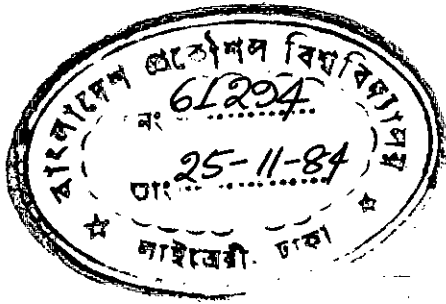 বাংলাদেশ প্রকৌশল বিশ্ববিদ্যালয়
নং 61294
তাং 25-11-84
লাইব্রেরী. ঢাকা